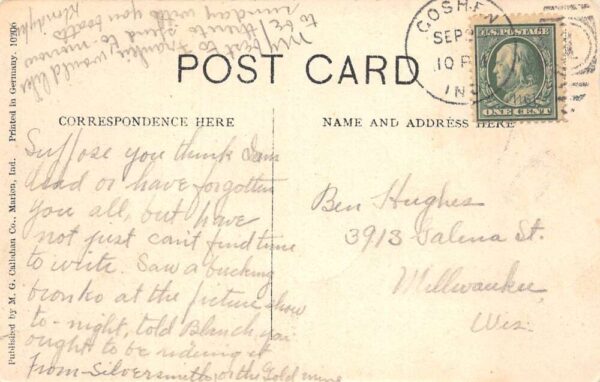 POST CARD
CORRESPONDENCE HERE
NAME AND ADDRESS HERE
GOSHEN
SEP
10 P
IND
U.S. POSTAGE
ONE CENT
Suppose you think I am
dead or have forgotten
you all, but have
not just can't find time
to write. Saw a bucking
bronko at the picture show
to-night, told Blanch you
ought to be riding it
From Silversmith, or the Gold mine
Ben Hughes
3913 Galena St.
Millwaukee,
Wis.
My best to Frankie, would like
to be
sunday with you both
Published by M. G. Callahan Co., Marion, Ind. Printed in Germany. 10206